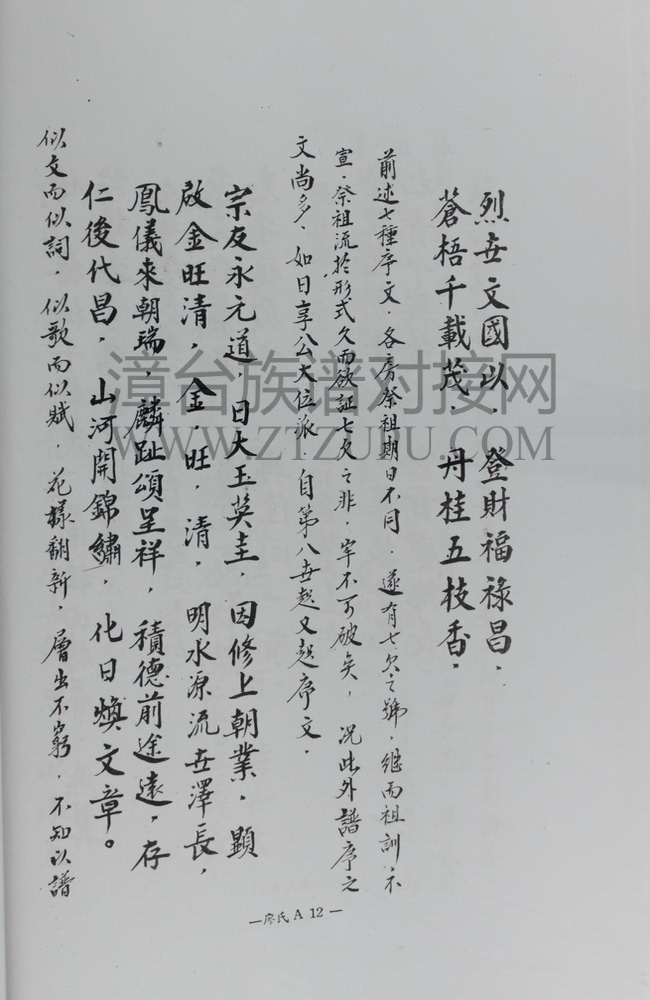 烈世文國以，登財福祿昌，
蒼梧千載茂，丹桂五枝香，
前述七種序文，各房祭祖期日不同，遂有七欠之號，継而祖訓，不
宣，祭祖流於形式久而欲証七欠之非，牢不可破矣，況此外譜序之
文尚多，如日享公大位派，自第八世起又起序文，
宗友永元道，日大玉英圭，因修上朝業，顯
啟金旺清，金，旺，清，明水源流世澤長，
鳳儀來朝瑞，麟趾頌呈祥，積德前途遠，存
仁後代昌，山河開錦繡，化日煥文章。
似文而似詞，似歌而似賦，花樣翻新，層出不窮，不知以譜
—廖氏 A 12—
漳台族谱对接网
WWW.ZTZUPU.COM